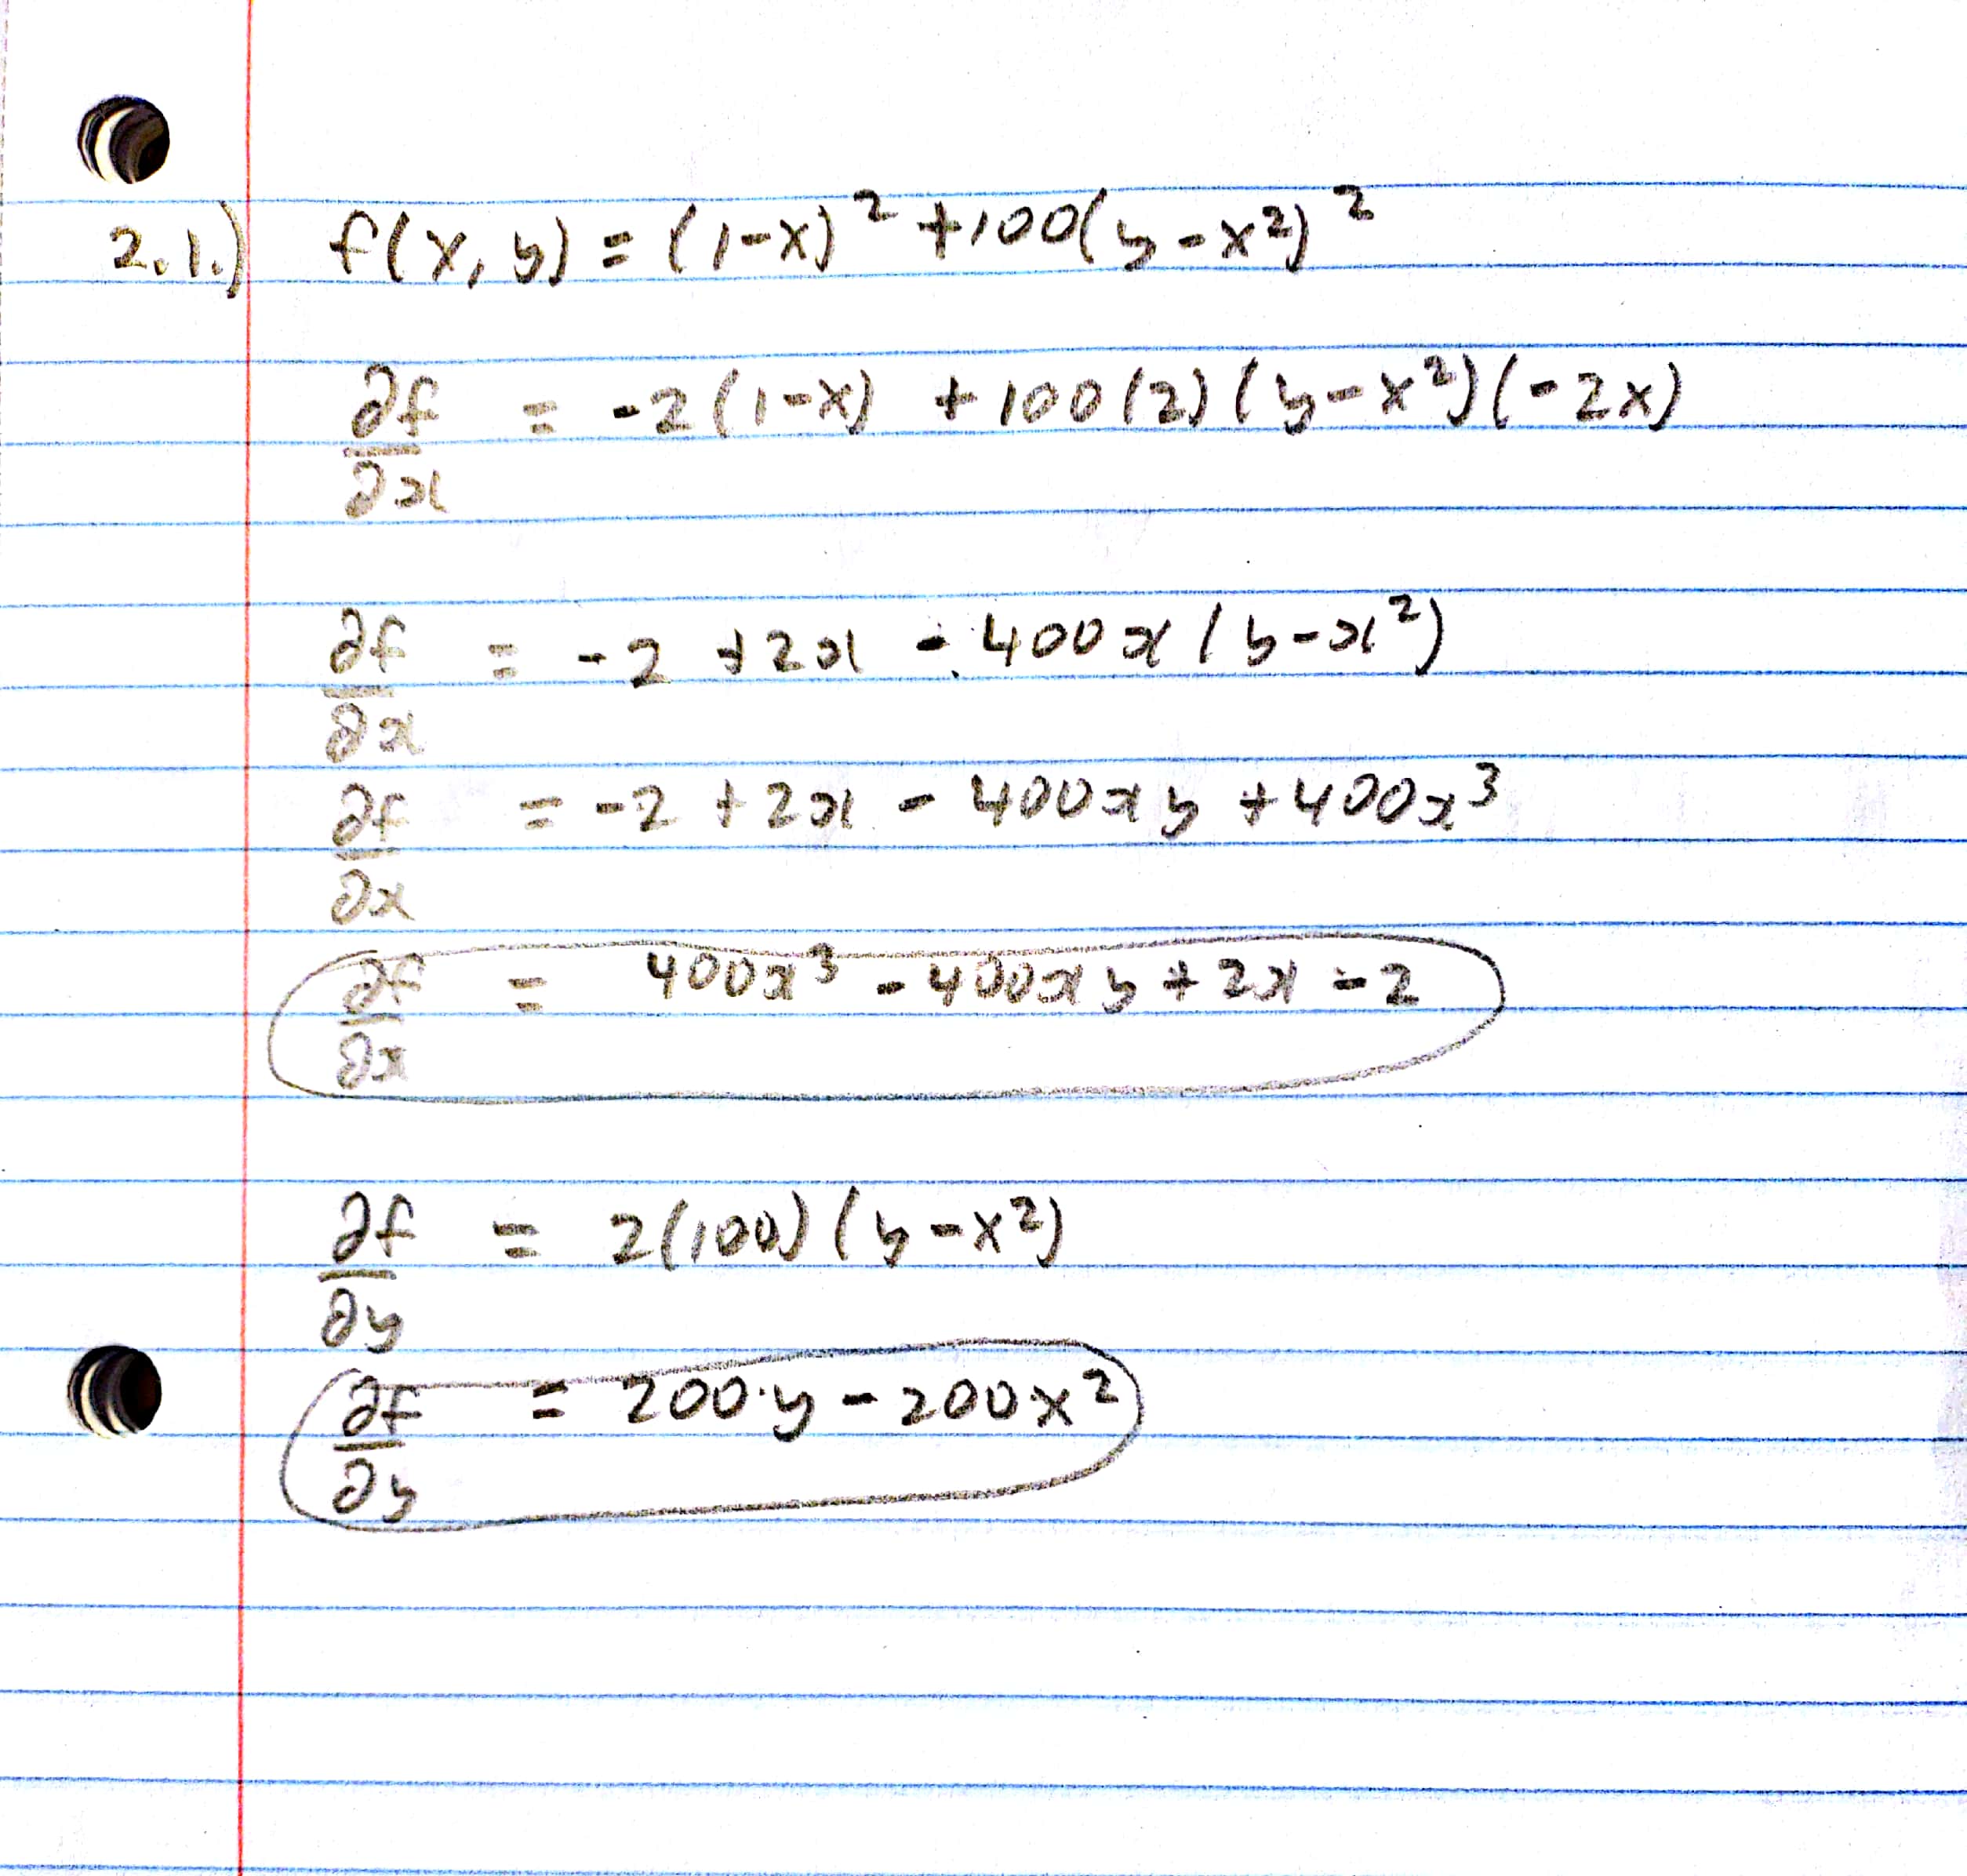 2.1.) f(x, y) = (1-x)² +100(y-x²)²
∂f/∂x = -2(1-x) +100(2)(y-x²)(-2x)
∂f/∂x = -2 +2x - 400x(y-x²)
∂f/∂x = -2 +2x - 400xy +400x³
∂f/∂x = 400x³ - 400xy + 2x - 2
∂f/∂y = 2(100)(y-x²)
∂f/∂y = 200y - 200x²